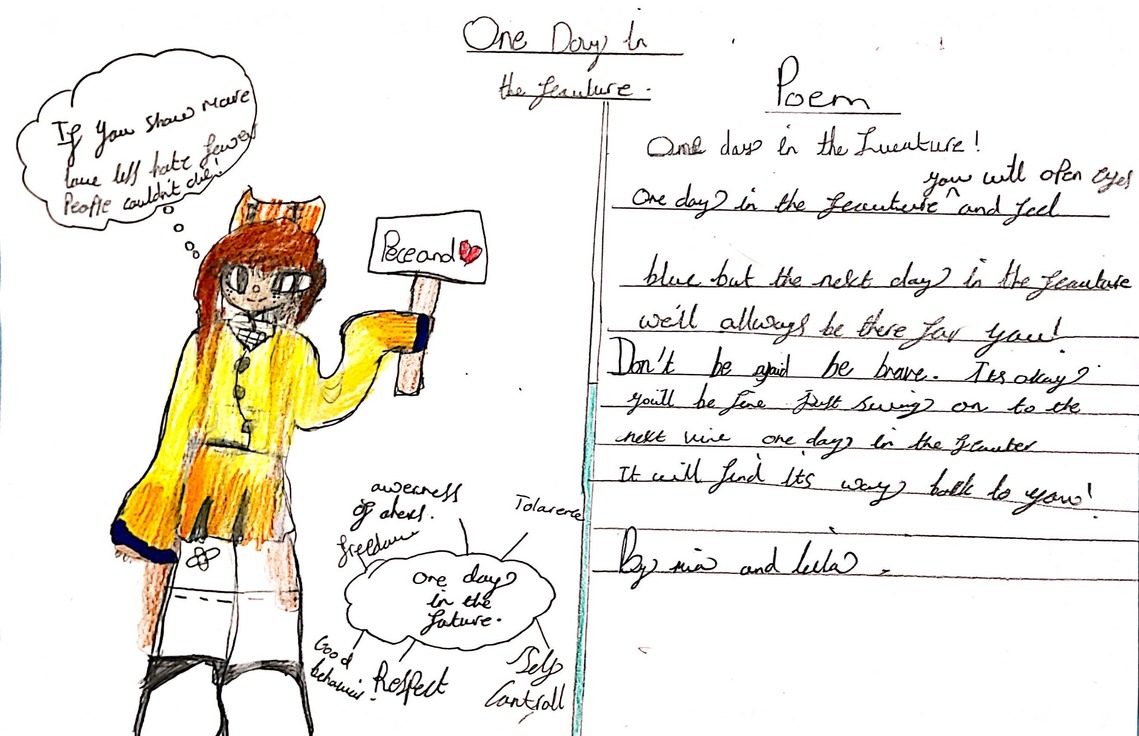 One Day In
the feauture.
If you show more
love less hate fewer
People couldn't die!
Pece and
awerness
of ohers.
freedom
Tolarence
one day
in the
future.
Good
behavior.
Respect
Self
Controll
Poem
One day in the fueature!
you will open eyes
One day in the feauture ^ and feel
blue but the next day in the feauture
we'll allways be there for you!
Don't be afraid be brave. Its okay
you'll be fine just swing on to the
next vine one day in the feauter
It will find its way back to you!
By mia and leila.